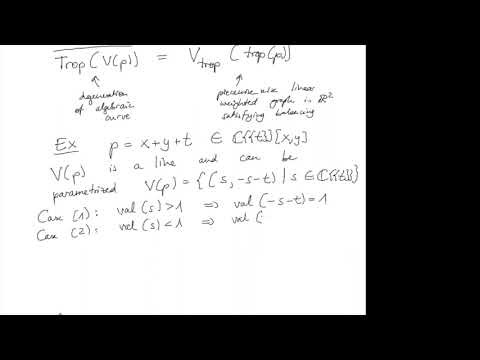 Trop(V(p)) = V_trop (trop(p))
degeneration of algebraic curve
piecewise linear weighted graph in ℝ² satisfying balancing
Ex p = x+y+t ∈ ℂ{{t}}[x,y]
V(p) is a line and can be
parametrized V(p) = {(s, -s-t) | s ∈ ℂ{{t}}}
Case (1): val(s)>1 ⇒ val(-s-t)=1
Case (2): val(s)<1 ⇒ val(